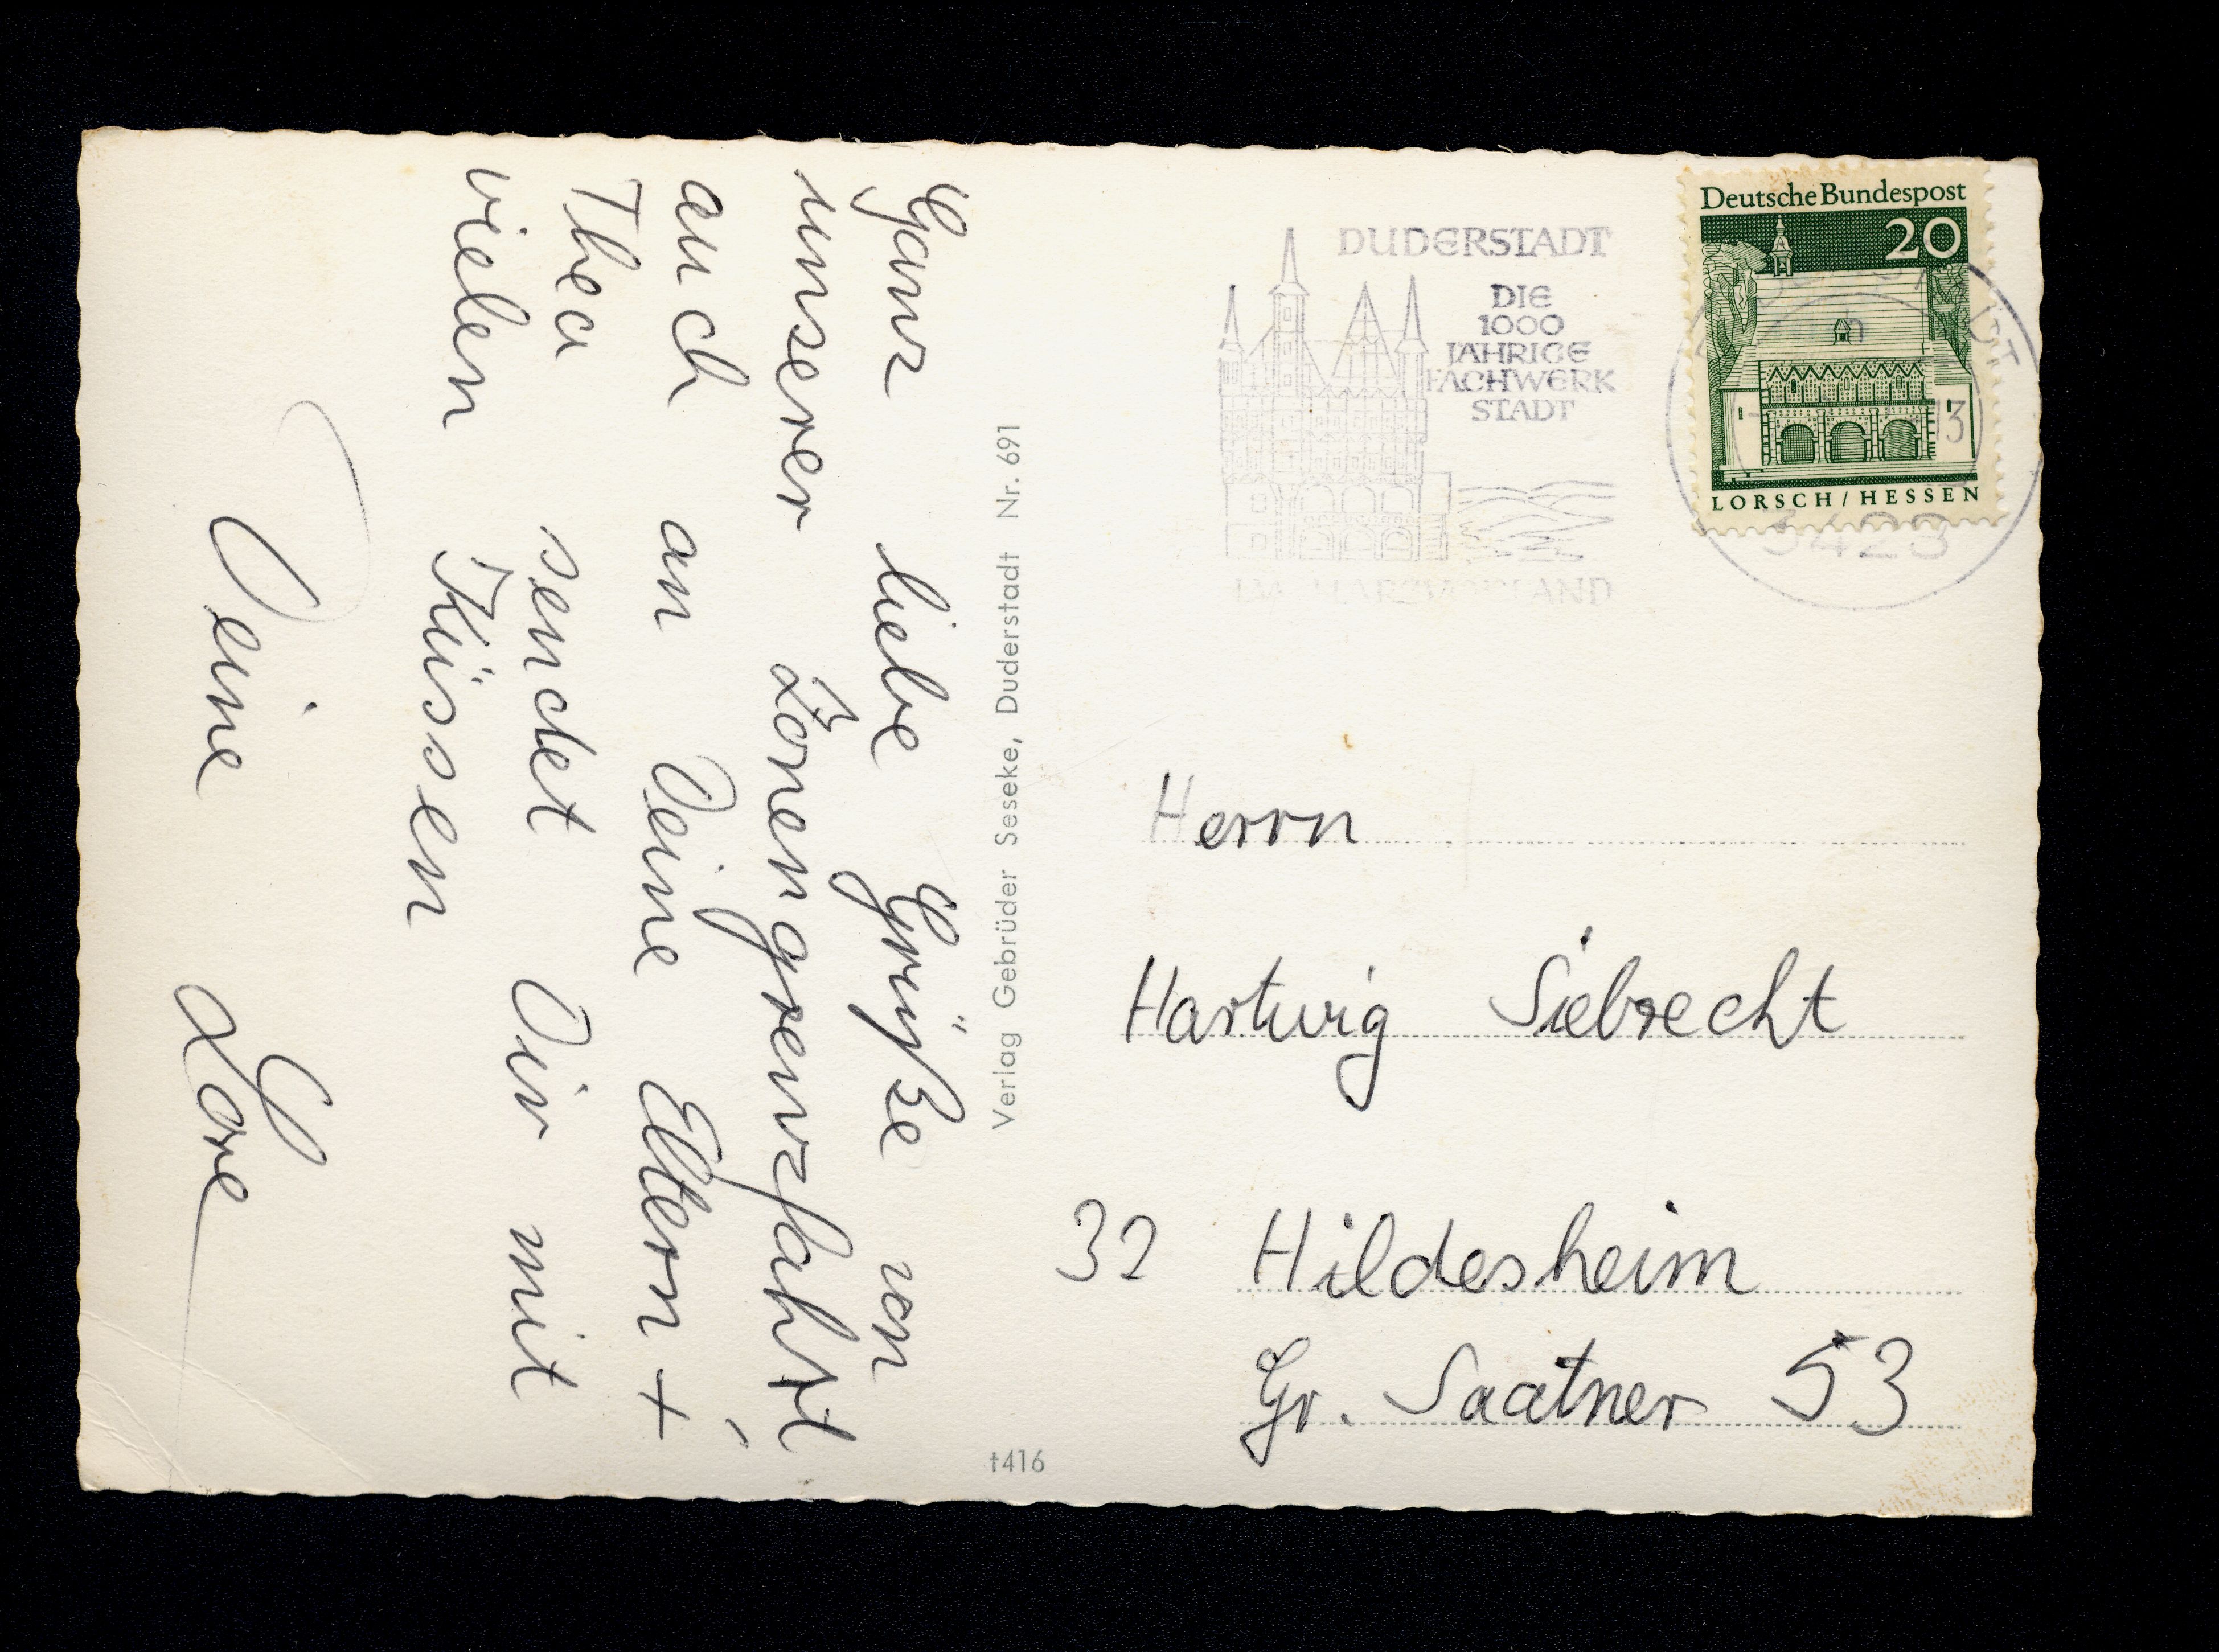 Ganz liebe Grüße von
unserer Zonengrenzfahrt,
auch an Deine Eltern +
Thea sendet Dir mit
vielen Küssen
Deine Lore
Verlag Gebrüder Seseke, Duderstadt Nr. 691
t416
DUDERSTADT
DIE
1000
JÄHRIGE
FACHWERK
STADT
IM HARZVORLAND
Deutsche Bundespost
20
LORSCH / HESSEN
13
3428
Herrn
Hartwig Siebrecht
32 Hildesheim
Gr. Saatner 53